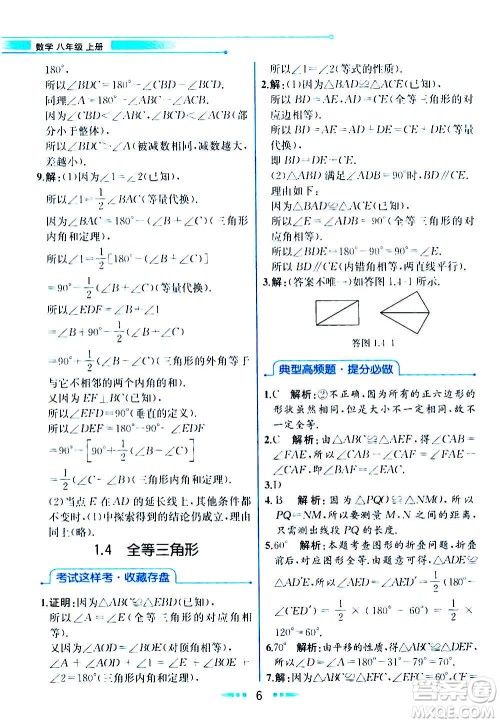 数学 八年级 上册
180°，
所以∠BDC=180°-∠1-∠BCD，
同理∠ABC=180°-∠ABC-∠ACB.
因为∠CBD<∠ABC，∠BCD<∠ACB(部分小于整体)，
所以∠BDC>∠BAC(被减数相同，减数越大，差越小).
9.解：(1)因为∠1=∠2(已知)，
所以∠1=1/2∠BAC(等量代换).
因为∠BAC=180°-(∠B+∠C)(三角形内角和定理)，
所以∠1=1/2[180°-(∠B+∠C)]
=90°-1/2(∠B+∠C)(等量代换).
所以∠EDF=∠B+∠1
=∠B+90°-1/2(∠B+∠C)
=90°+1/2(∠B-∠C)(三角形的外角等于与它不相邻的两内角之和).
又因为EF⊥BC(已知)，
所以∠EFD=90°(垂直的定义).
所以∠DEF=90°-∠EDF
=90°-[90°+1/2(∠B-∠C)]
=1/2(∠C-∠B)(三角形内角和定理).
(2)当点E在AD的延长线上时，其余条件都不变时，(1)中探索得到的结论仍成立，理由同上(略).
1.4 全等三角形
考试这样考·收藏存盘
1.证明：(1)因为△ABC≌△DEB(已知)，
所以∠A=∠D(全等三角形的对应角相等).
又因为∠AOD=∠BOE(对顶角相等)，
∠AOD+∠A=∠BOE+∠D(等式的性质)，
所以∠1=∠2(等式的性质).
2.解：(1)因为△BAD≌△ACE(已知)，
所以BD=AE，AD=CE(全等三角形的对应边相等).
又因为AE=AD+DE(已知)，
所以BD=CE+DE(等量代换)，
即BD=DE+CE.
(2)△ABD满足∠ADB=90°时，BD∥CE.
理由如下：
因为△BAD≌△ACE(已知)，
所以∠E=∠ADB=90°(全等三角形的对应角相等).
所以∠BDE=180°-90°=90°=∠E.
所以BD∥CE(内错角相等，两直线平行).
3.解：(答案不唯一)如答图1.4-1
答图1.4-1
典型高频题·提分必做
1.C 解析：②不正确，因为所有的正六边形的形状虽然相同，但是大小不一定相同，故不一定全等.
2.C 解析：由△ABC≌△AEF，得∠CAB=∠FAE，所以∠FAC=∠BAE.
3.D
4.B 解析：因为△PQO≌△NMO，所以PQ=NM，故只需测出其长度MN，即可求出PQ的长度.
5.60° 解析：本题考查图形的全等问题.
因为△ADE≌△CED′，
所以∠D=∠D′=∠CED′=60°，
所以∠1+∠2=180°-∠CED′=180°-60°=120°.
6.70° 解析：由平移的性质，得△ABC≌△DEF，所以∠EDF=∠A=70°.
6